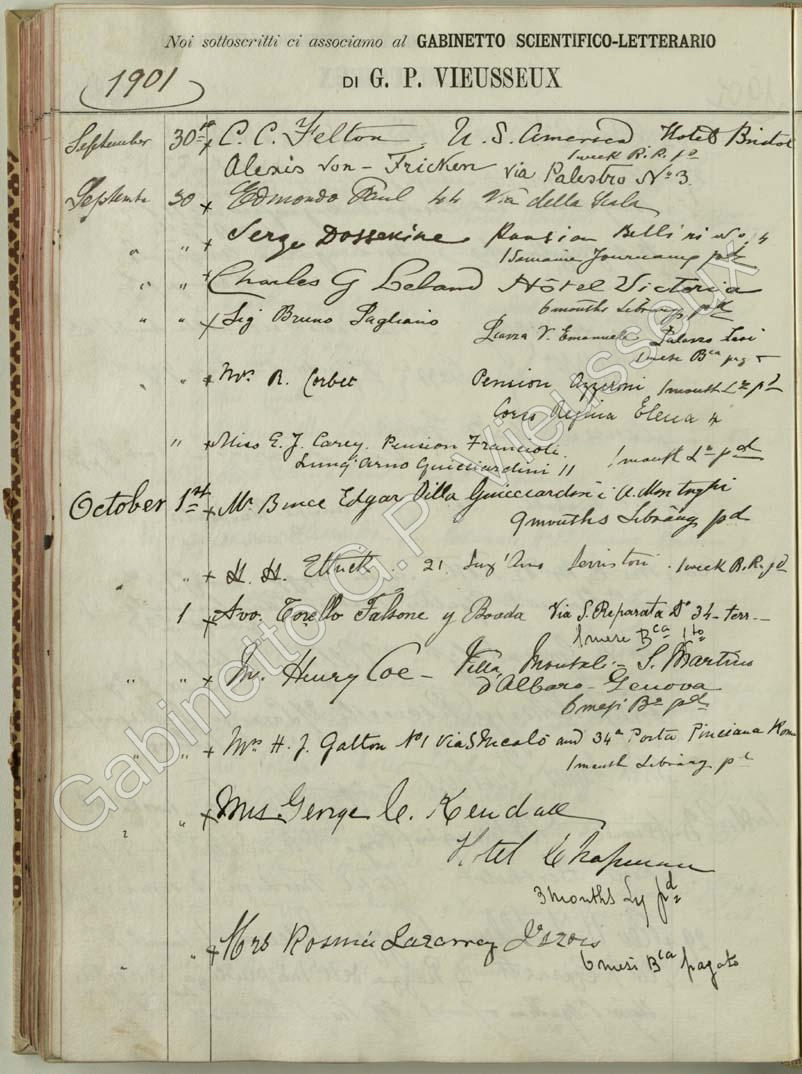 Noi sottoscritti ci associamo al GABINETTO SCIENTIFICO-LETTERARIO
1901
DI G. P. VIEUSSEUX
September 30 C. C. Felton U. S. America Hotel Bristol
1 week R. R. pd
Alexis von-Fricken via Palestro No 3.
Septembre 30 Edmondo Paul 44 Via della Scala
" Serge Pension Bellini No. 4
1 Semaine pd
" " Charles G Leland Hôtel Victoria
6 months Library pd
" " Sig Bruno Pagliano Piazza V. Emanuele Palazzo
1 mese Bca pag
" Mr. R. Corbet Pension 1 month Ly pd
Corso Regina Elena 4
" Miss E. J. Carey. Pension Francioli.
Lung'Arno Guicciardini 11 1 month pd
October 1st Mr Bruce Edgar Villa Guicciardini a Montughi
9 months Library pd
" " H. H. 21 Lung'Arno Serristori 1 week R. R. pd
1 Avv. Torello Falsone y Boada Via S. Reparata No 34-terr-
1 mese Bca
" " Mr. Henry Coe - Villa S. Martino
d'Albaro - Genova
6 mesi Ba pd
" " Mrs H. J. Galton No 1 Via S Nicolò and 34a Porta Pinciana Rome
1 month Library pd
" " Mrs. George C. Kendall
Hotel Chapman
3 months Ly pd
" " Mrs
6 mesi Bca pagato
Gabinetto G.P. Vieusseux